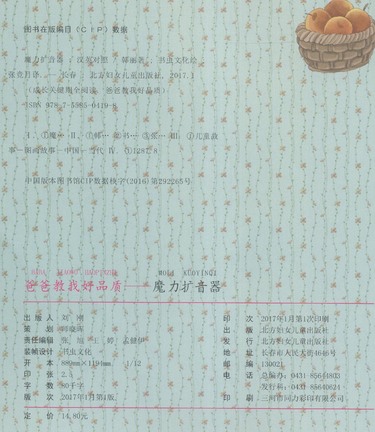 图书在版编目(CIP)数据
魔力扩音器:汉英对照/郭丽著;书虫文化绘
张贵月译. — 长春:北方妇女儿童出版社, 2017.1
(成长关键期全阅读·爸爸教我好品质)
ISBN 978-7-5585-0419-8
Ⅰ. ①魔… Ⅱ. ①郭… ②书… ③张… Ⅲ. ①儿童故
事—图画故事—中国—当代 Ⅳ. ①I287.8
中国版本图书馆CIP数据核字(2016)第292265号
爸爸教我好品质——魔力扩音器
出版人 刘刚
策划 师晓晖
责任编辑 张旭 王婷
装帧设计 书虫文化
开本 889mm×1194mm 1/12
印张 2.5
字数 30千字
版次 2017年1月第1版
定价 14.80元
印次 2017年1月第1次印刷
出版 北方妇女儿童出版社
发行 北方妇女儿童出版社
地址 长春市人民大街4646号
邮编 130021
电话 总编办:0431-85644803
发行科:0431-85640624
印刷 三河市同力彩印有限公司